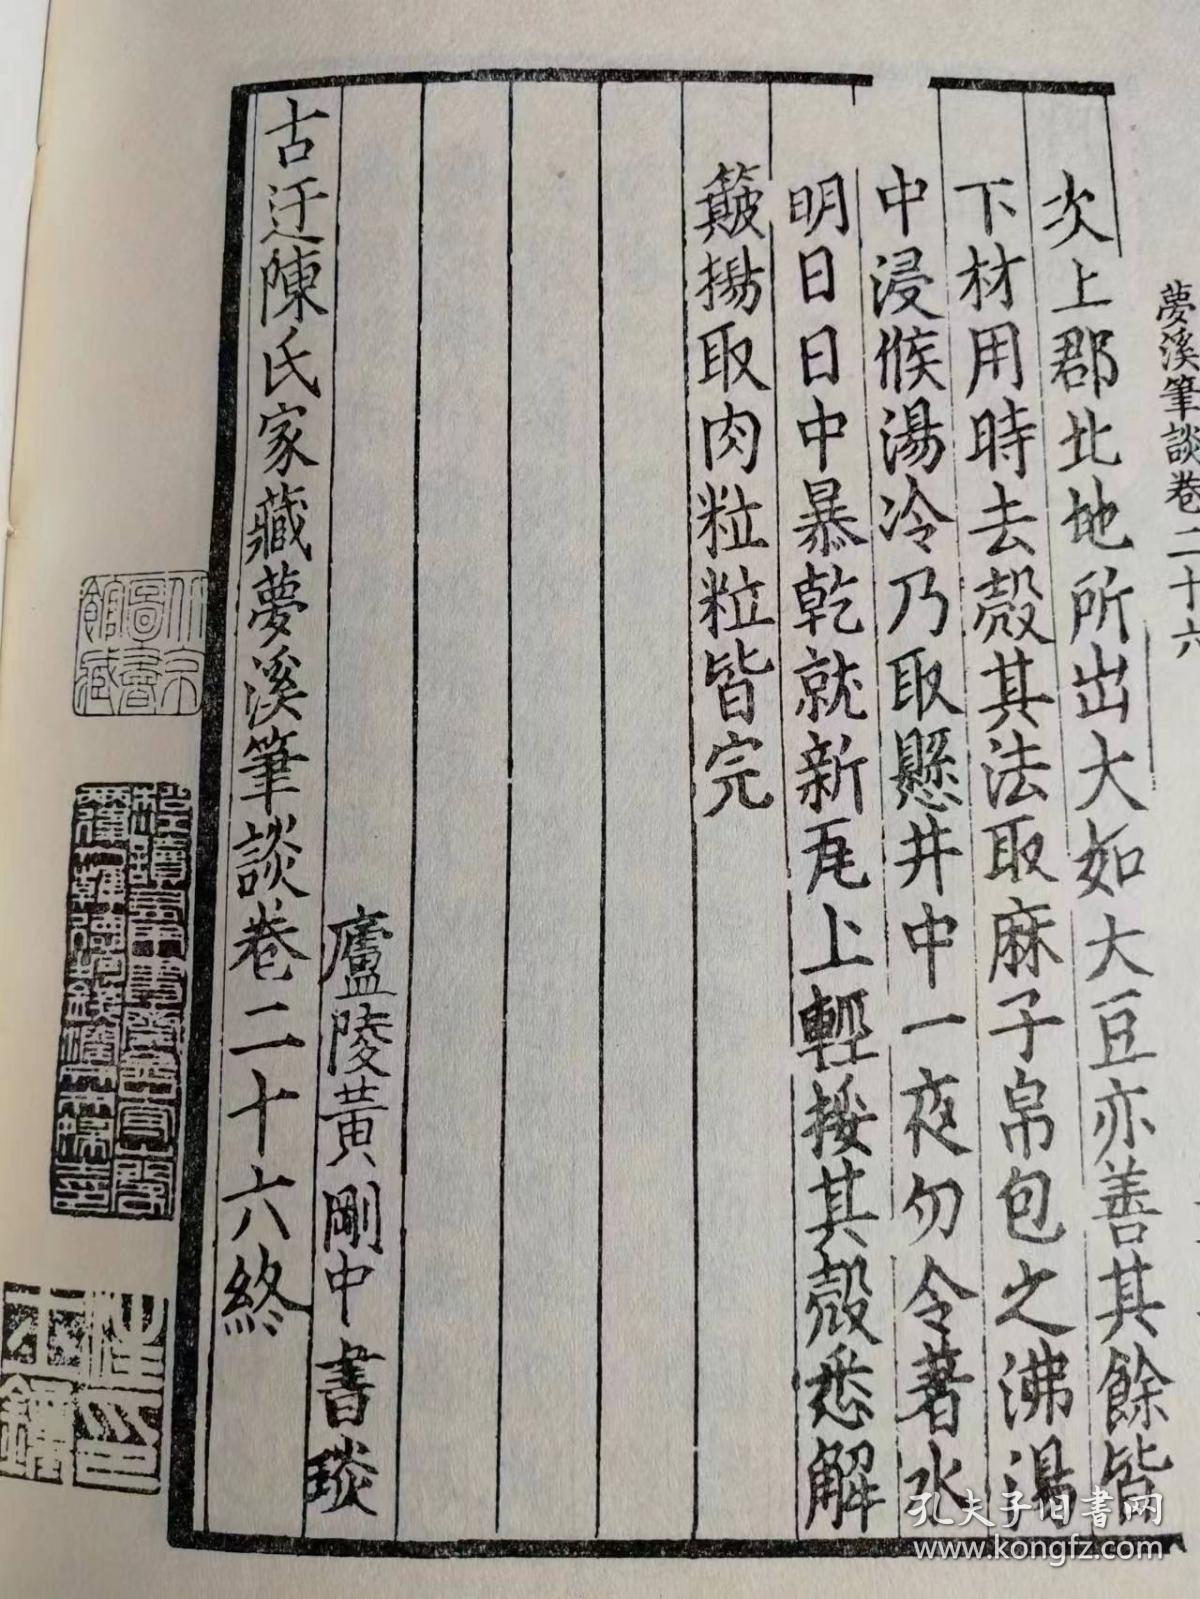 夢溪筆談卷二十六
次上郡北地所出大如大豆亦善其餘皆
下材用時去殼其法取麻子帛包之沸湯
中浸候湯冷乃取懸井中一夜勿令著水
明日日中暴乾就新瓦上輕挼其殼悉解
簸揚取肉粒粒皆完
廬陵黃剛中書琰
古迂陳氏家藏夢溪筆談卷二十六終
北京
圖書
館藏
孔夫子旧书网
www.kongfz.com